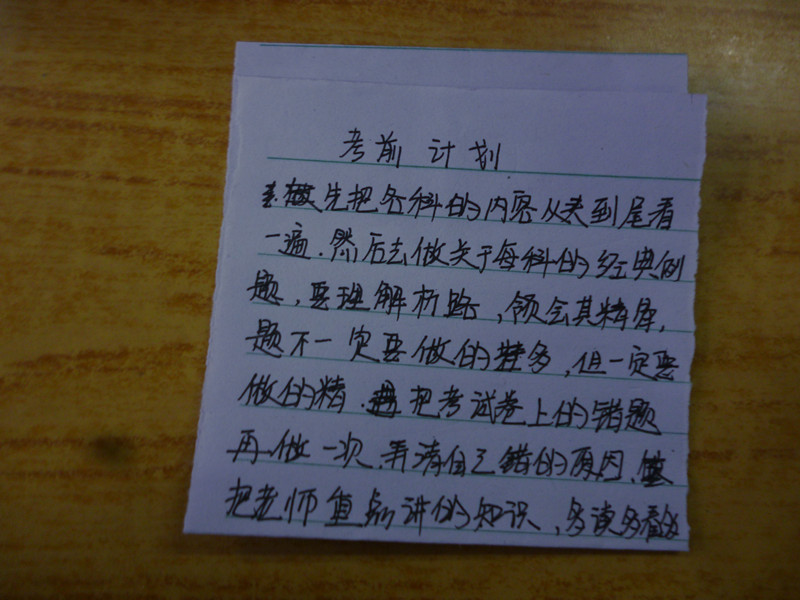 考前计划
先把各科的内容从头到尾看
一遍.然后去做关于每科的经典例
题,要理解析路,领会其精库,
题不一定要做的多,但一定要
做的精.把考试卷上的错题
再做一次,弄清自己错的原因,
把老师重点讲的知识,多读多看